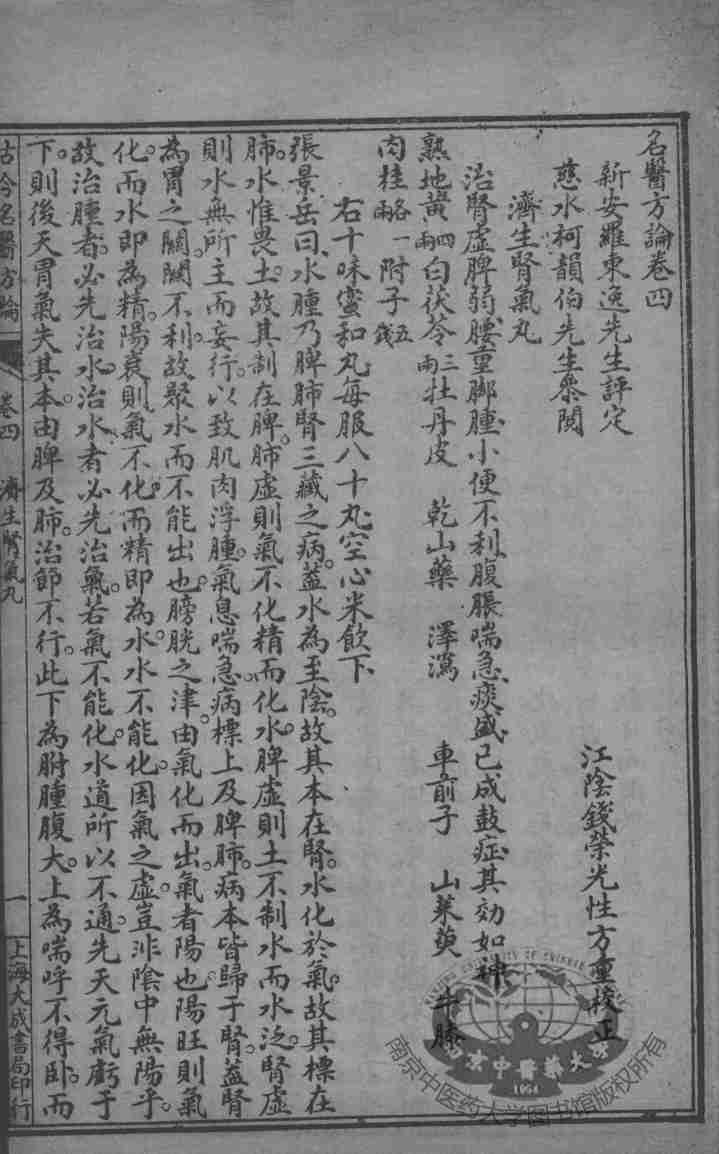 名醫方論卷四
新安羅東逸先生評定
慈水柯韻伯先生參閱
江陰錢榮光性方重校正
濟生腎氣丸
治腎虛脾弱腰重脚腫小便不利腹脹喘急痰盛已成鼓症其効如神
熟地黃四兩 白茯苓三兩 牡丹皮 乾山藥 澤瀉 車前子 山茱萸 牛膝
肉桂各一兩 附子五錢
右十味蜜和丸每服八十丸空心米飲下
張景岳曰水腫乃脾肺腎三藏之病。蓋水為至陰。故其本在腎。水化於氣。故其標在
肺。水惟畏土。故其制在脾。肺虛則氣不化精而化水。脾虛則土不制水而水泛。腎虛
則水無所主而妄行。以致肌肉浮腫。氣息喘急。病標上及脾肺。病本皆歸于腎。蓋腎
為胃之關。關不利。故聚水而不能出也。膀胱之津。由氣化而出。氣者陽也。陽旺則氣
化。而水即為精。陽衰則氣不化。而精即為水。水不能化。因氣之虛。豈非陰中無陽乎。
故治腫者。必先治水。治水者必先治氣。若氣不能化。水道所以不通。先天元氣虧于
下。則後天胃氣失其本。由脾及肺。治節不行。此下為胕腫腹大。上為喘呼不得卧。而
古今名醫方論 卷四 濟生腎氣丸 一 上海大成書局印行
南京中医药大学图书馆版权所有
NANJING UNIVERSITY OF CHINESE
南京中醫藥大學
1954